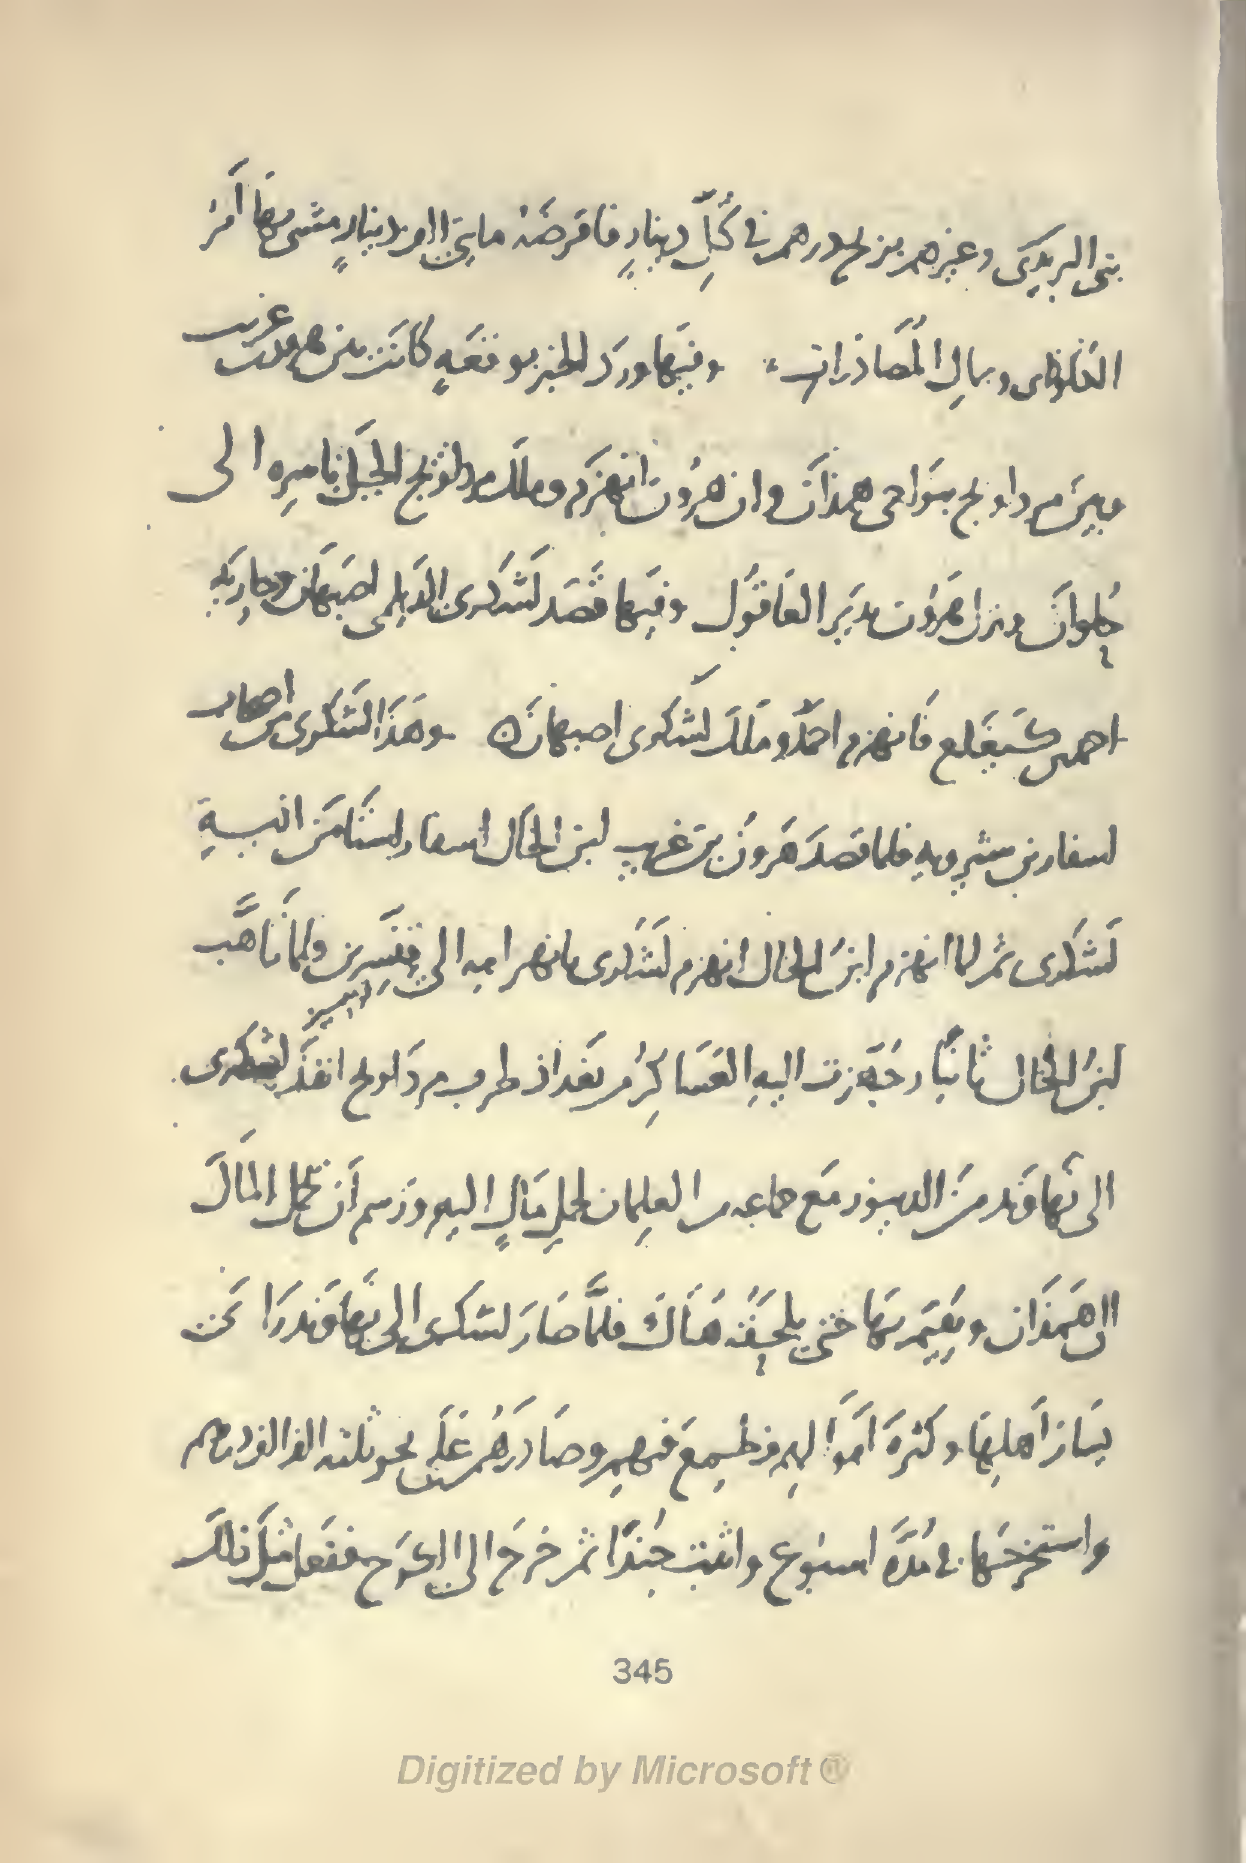 بنى البريدى وغيرهم بربح درهم فى كُلِّ دينارٍ فاقرضَهُ مايتى الف دينارٍ مشى بها اَمرُ
الفلوذانى وبمالِ المُصاذرات، وفيها ورد الخبر بوقعَهٍ كانَت بين هرون بن غريب
وبين مرداويج بنَواحى همذانَ وان هرُونَ انهزَم وملكَ مرداويج الجبَل باسرِه الى
حُلوانَ ونزل هَرُون بدَير العاقُول وفيها قصَدَ لَشكرى الديلمى اصبهانَ وحاربَه
احمد بن كَيغَلغ فانهزم احمَد وملكَ لشكرى اصبهانَ ه وهَذَا لشكرى من اصحاب
اسفار بن شيرويه فلما قصدَ هَرون بن غريب ابن الخال اسفار استَامَن اليهِ
لَشكرى ثم لما انهزم ابنُ الخال انهزم لَشكرى بانهزامه الى قِنَّسرين ولمَّا تاهَّب
ابنُ الخال ثانيًا وجُهِّزت اليهِ العَسَاكِرُ من بغداذ طرف مرداويج انفَذَ لشكرى
الى نهاوَند من الدينور مَع جماعه من الغِلمان لحملِ مَالٍ اليه ورَسم اَن يحمل المالَ
الى هَمَذان ويُقيمَ بَها حتى يلحقَهُ هُناكَ فلمَّا صَارَ لشكرى الى نَهاوَند رَاى
يسَارَ اَهلهَا وكثرَه اَموَالهم فطَمِعَ فيهم وصَادَرهُم عَلى نحو ثلثه الف الف درهم
واستخرجَها فى مُدَّه اسبُوع واثبت جُندًا ثم خرَج الى الكَرَج ففَعل مثلَ ذلكَ
345
Digitized by Microsoft ®